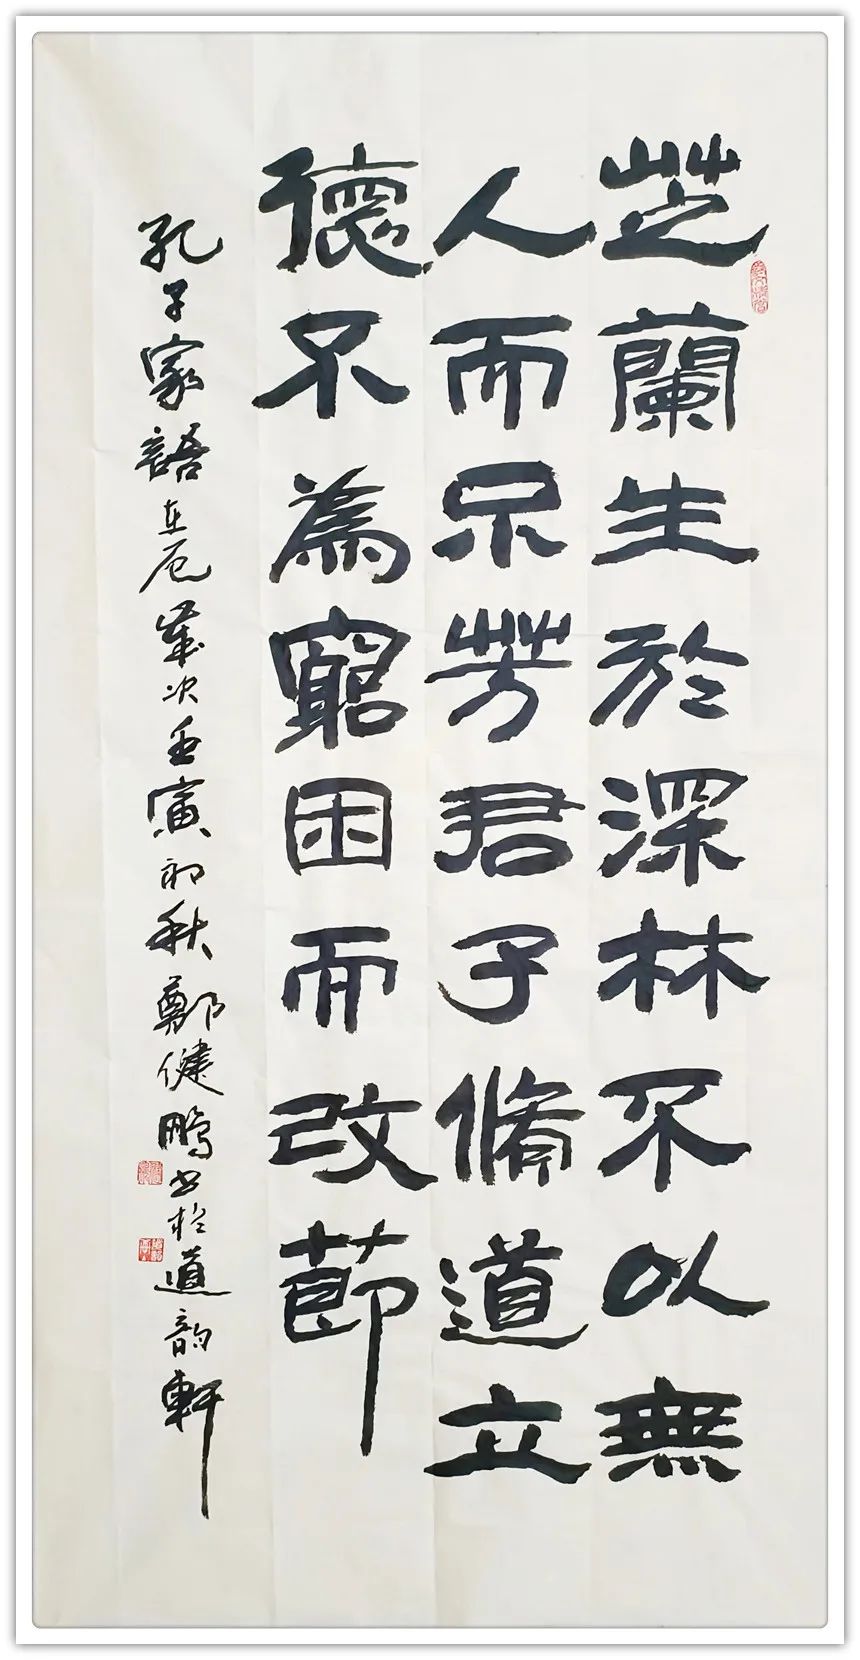 芝蘭生於深林不以無
人而不芳君子脩道立
德不為窮困而改節
孔子家語在厄歲次壬寅初秋鄭健鵬書於道韵軒